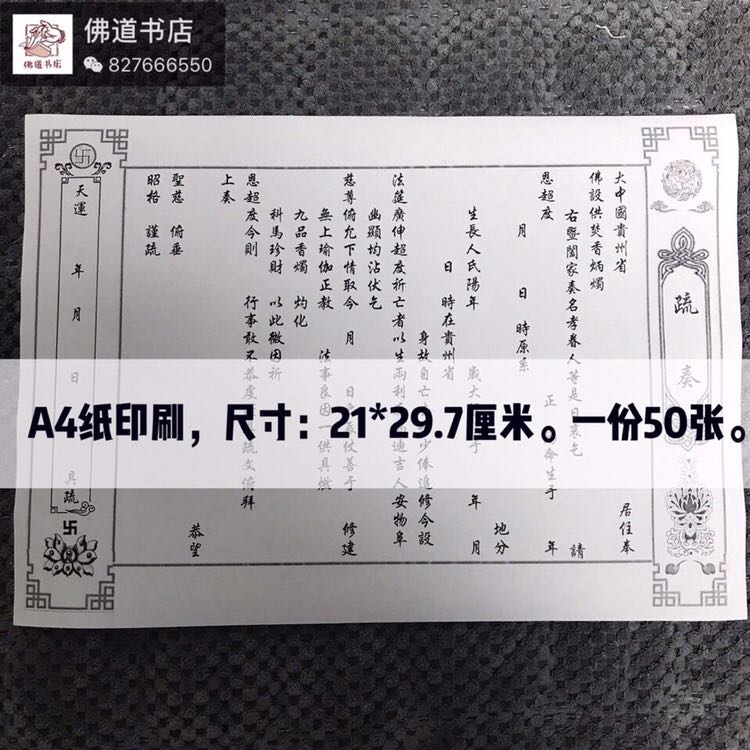 佛道书店
827666550
佛道书店
疏奏
大中國貴州省 居住奉
佛設供焚香炳燭 請
右暨闔家奏名孝眷人等是日哀乞
恩超度 正 命生于 年
月 日 時原系 地分
生長人氏陽年 歲大 年 月
日 時在貴州省
身故自亡 少倈追修今設
法筵廣伸超度祈亡者以生兩利 迪吉人安物阜
幽顯均沾伏乞
慈尊俯允下情取今 月 日 仗善于 修建
無上瑜伽正教 法事良因一供具燃
九品香燭 灼化
科馬珍財 以此微因祈
恩超度今則 行事敢不恭度 疏文俯拜
上奏 恭望
聖慈 俯垂
昭格 謹疏
天運 年 月 日 具疏
A4纸印刷，尺寸：21*29.7厘米。一份50张。